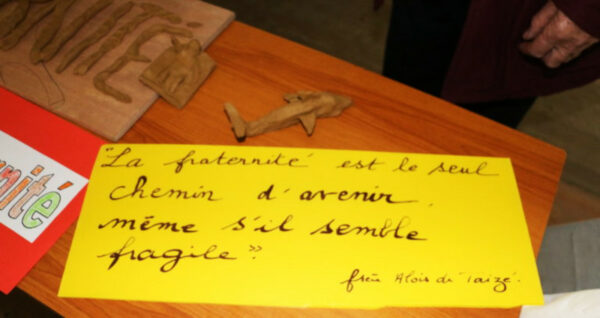 NITÉ
nité
"La fraternité est le seul
chemin d'avenir,
même s'il semble
fragile".
frère Alois de Taizé.